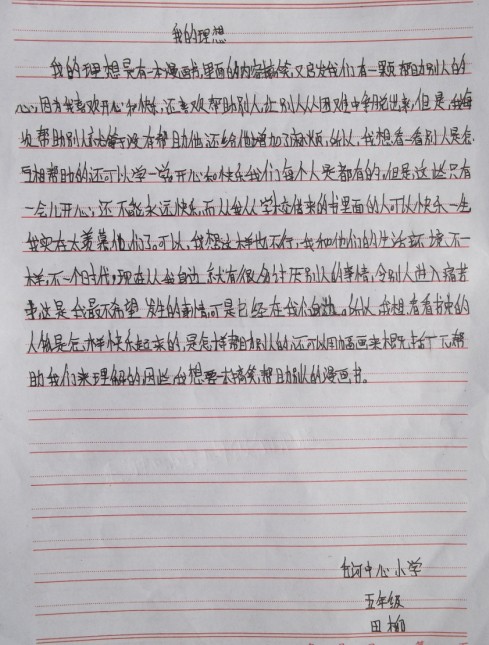 我的理想
我的理想是有一本漫画书,里面的内容搞笑,又启发我们有一颗帮助别人的
心,因为我喜欢开心和快乐,还喜欢帮助别人,让别人从困难中争脱出来,但是,我每
次帮助别人就等于没有帮助他,还给他增加了麻烦,所以,我想看一看别人是怎
互相帮助的还可以学一学。开心和快乐我们每个人是都有的,但是,这些只有
一会儿开心,还不能永远快乐,而从我从学校借来的书里面的人可以快乐一生
我实在太羡慕他们了。可以,我想这样也不行,我和他们的生活环境不一
样,不一个时代,现在从我身边就有很多讨厌别人的事情,令别人进入痛苦
事,这是我最不希望发生的事情,可是已经在我们身边。所以,我想看看书里的
人们是怎样快乐起来的,是怎样帮助别人的,还可以用画面来概括一下,帮
助我们来理解的,因此,我想要一本搞笑帮助别人的漫画书。
河中心小学
五年级
田柳